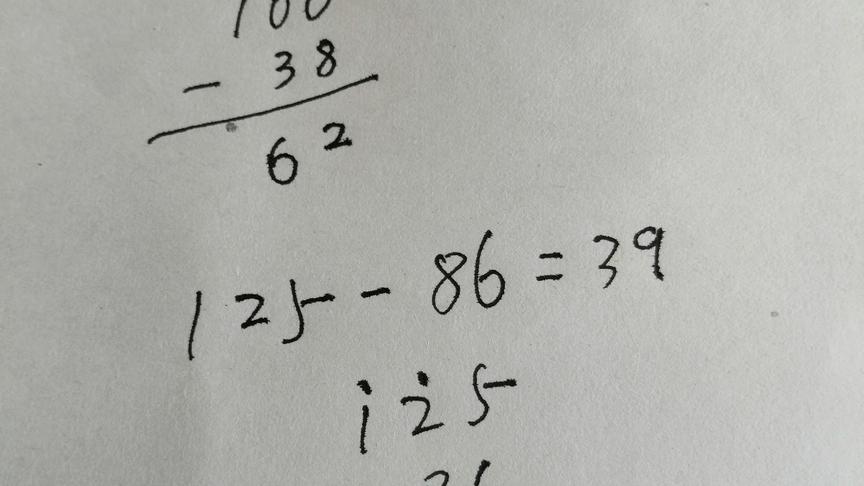 100
- 38
62
125 - 86 = 39
125